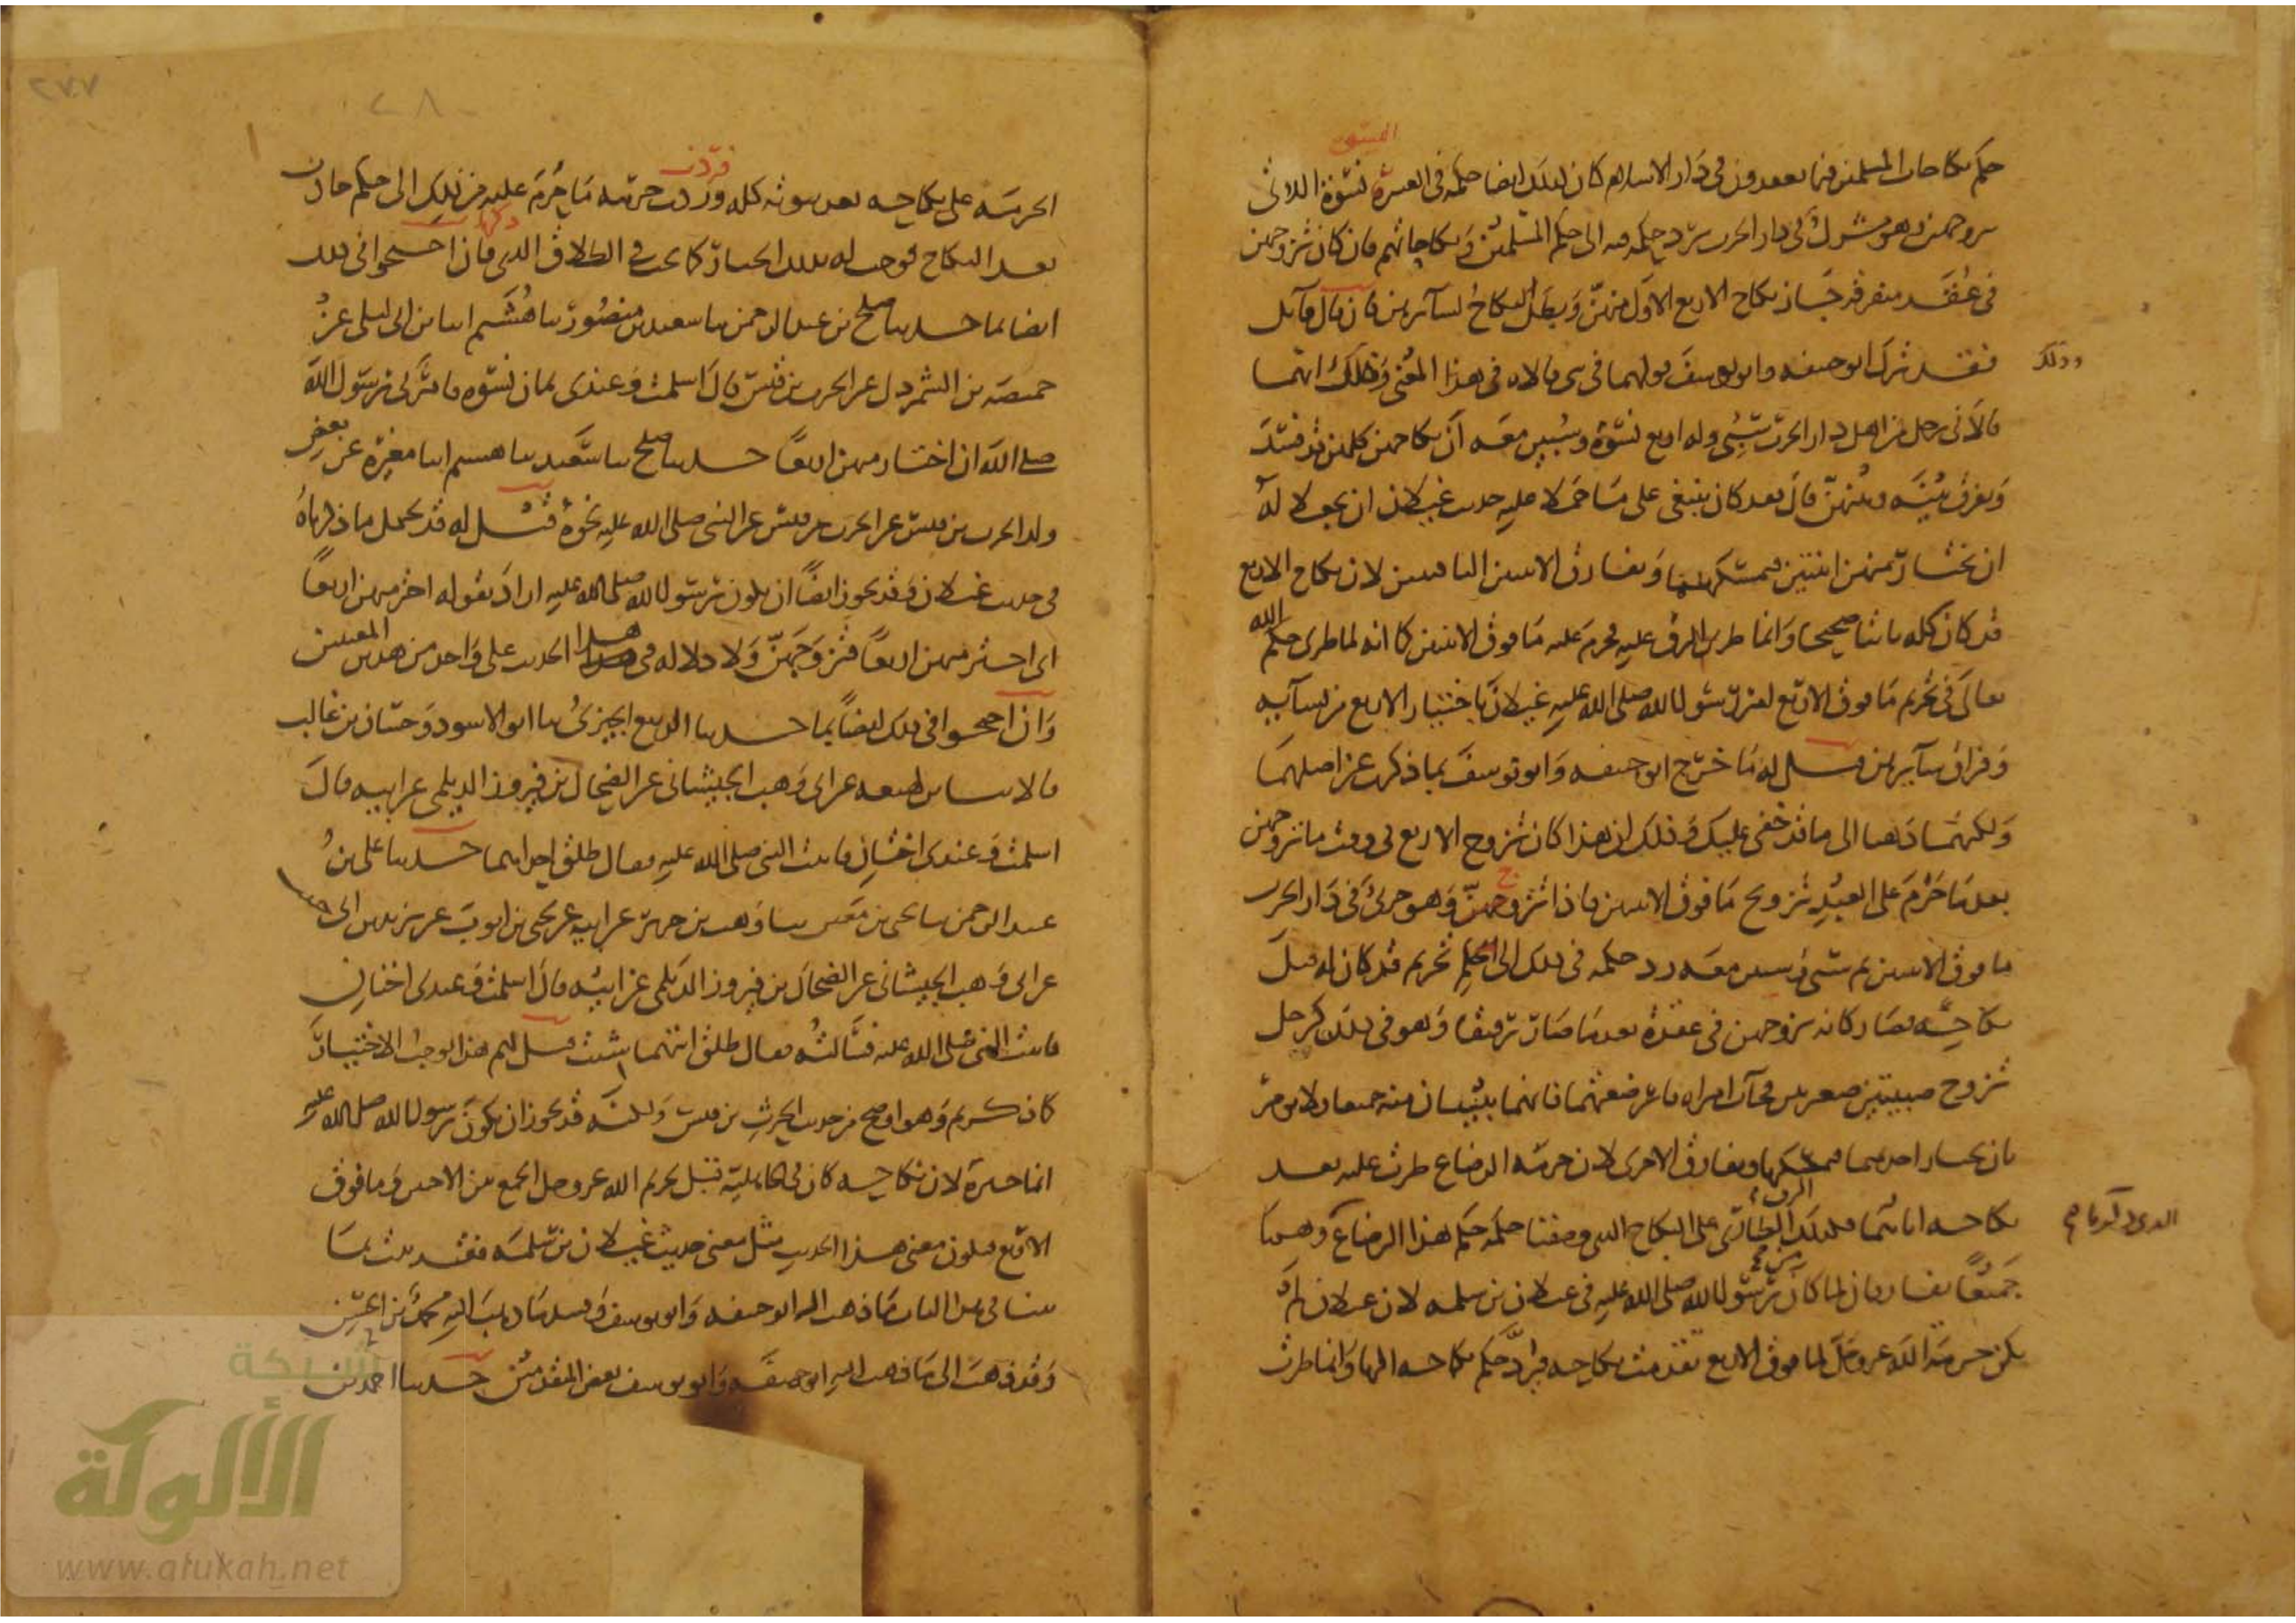 حكم نكاحات المسلمين فيما يعقدون في دار الاسلام كان كذلك ايضا حكمه في العشرة نسوة اللاتي
تزوجهن وهو مشرك في دار الحرب يرد حكمه فيه الى حكم المسلمين في نكاحاتهم فان كان تزوجهن
في عقد متفرقة جاز نكاح الاربع الاول منهن وبطل نكاح سائرهن فان قال قائل
فقد ترك ابو حنيفة وابو يوسف قولهما في شي قالاه في هذا المعنى وذلك انهما
قالا في رجل من اهل دار الحرب سبي وله اربع نسوة وسبين معه ان نكاحهن كلهن قد فسد
ويفرق بينه وبينهن قال فقد كان ينبغي على ما حملا عليه حديث غيلان ان يجعلا له
ان يختار منهن اثنتين فيمسكهما ويفارق الاثنتين الباقيتين لان نكاح الاربع
قد كان كله ثابتا صحيحا وانما طرى الرق عليه فحرم عليه ما فوق الاثنتين كما انه لما طرى حكم الله
تعالى في تحريم ما فوق الاربع امر رسول الله صلى الله عليه غيلان باختيار الاربع من نسآيه
وفراق سآيرهن قيل له ما خرج ابو حنيفة وابو يوسف بما ذكرت عن اصلهما
ولكنهما ذهبا الى ما قد خفي عليك وذلك ان هذا كان تزوج الاربع في وقت ما تزوجهن
بعدما حرم على العبد تزويج ما فوق الاثنتين فاذا تزوجهن وهو حربي في دار الحرب
ما فوق الاثنتين ثم سبي وسبين معه رد حكمه في ذلك الى حكم تحريم قد كان له قبل
نكاحه فصار كانه تزوجهن في عقدة بعدما صار رقيقا وهو في ذلك كرجل
تزوج صبيتين صغيرتين فجآت امراه فارضعتهما فانهما يبينان منه جميعا ولا يومر
بان يختار احديهما فيمسكها ويفارق الاخرى لان حرمة الرضاع طرت عليه بعد
نكاحه اياهما فكذلك الرق الطاري على النكاح الذي وصفنا حكمه حكم هذا الرضاع وهما
جميعا يفارقان لما كان من رسول الله صلى الله عليه في غيلان بن سلمه لان غيلان لم
يكن حرمة الله عز وجل لما فوق الاربع تقدمت نكاحه فيرد حكم نكاحه اليها وانما طرت
الحرمة على نكاحه بعد ثبوته كله فردت حرمة ما حرم عليه من ذلك الى حكم حادث
بعد النكاح فوجب له بذلك الخيار كما يجب في الطلاق الذي فان احتجوا في ذلك
ايضا بما حدثنا صلح بن عبد الرحمن ثنا سعيد بن منصور ثنا هشيم انبا ابن ابي ليلى عن
حميضه بن الشمردل عن الحرث بن قيس قال اسلمت وعندي ثمان نسوه فامرني رسول الله
صلى الله ان اختار منهن اربعا حدثنا صلح ثنا سعيد ثنا هشيم انبا مغيرة عن بعض
ولد الحرث بن قيس عن الحرث بن قيس عن النبي صلى الله عليه نحوه قيل له قد يحتمل ما ذكرناه
في حديث غيلان وقد يجوز ايضا ان يكون رسول الله صلى الله عليه اراد بقوله اختر منهن اربعا
اي اختر منهن اربعا فتزوجهن ولا دلاله في هذا الحديث على واحد من هذين المعنيين
وان احتجوا في ذلك ايضا بما حدثنا الربيع الجيزي ثنا ابو الاسود وحسان بن غالب
قالا ثنا ابن لهيعه عن ابي وهب الجيشاني عن الضحاك بن فيروز الديلمي عن ابيه قال
اسلمت وعندي اختان فاتيت النبي صلى الله عليه فقال طلق احداهما حدثنا علي بن
عبد الرحمن ثنا يحيى بن معين ثنا وهب بن جرير عن ابيه عن يحيى بن ايوب عن يزيد بن ابي حبيب
عن ابي وهب الجيشاني عن الضحاك بن فيروز الديلمي عن ابيه قال اسلمت وعندي اختان
فاتيت النبي صلى الله عليه فسألته فقال طلق ايتهما شئت قيل لهم هذا يوجب الاختيار
كما ذكرتم وهو اوضح من حديث الحرث بن قيس ولكنه قد يجوز ان يكون رسول الله صلى الله عليه
انما خيره لان نكاحه كان في الجاهلية قبل تحريم الله عز وجل الجمع بين الاختين وما فوق
الاربع فيكون معنى هذا الحديث مثل معنى حديث غيلان بن سلمه فقد ثبت بما
بينا في هذا الباب ما ذهب اليه ابو حنيفه وابو يوسف وفسد ما ذهب اليه محمد بن الحسن
وقد ذهب الى ما ذهب اليه ابو حنيفه وابو يوسف بعض المتقدمين حدثنا احمد بن
شبكة
الألوكة
www.alukah.net